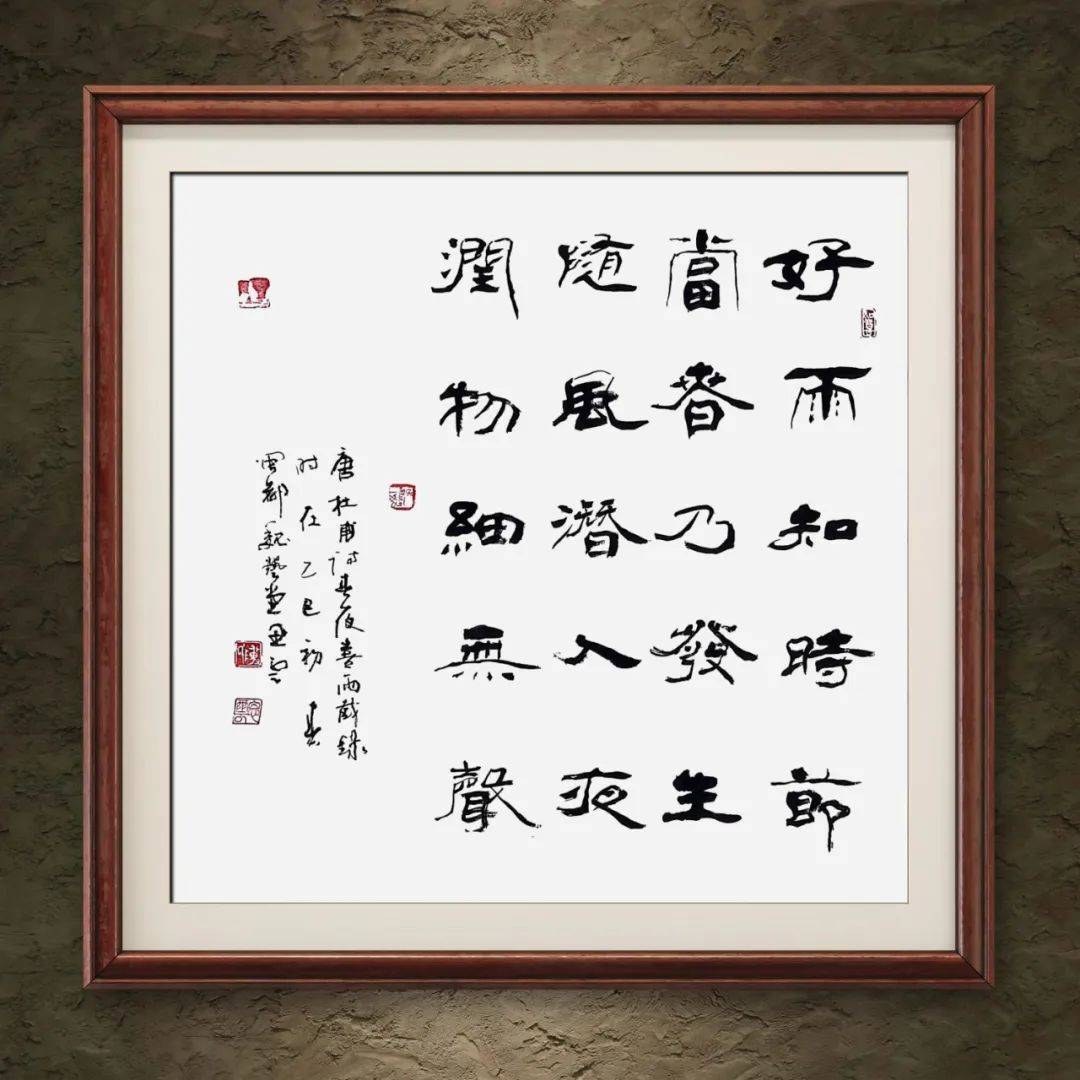 好雨知時節
當春乃發生
隨風潛入夜
潤物細無聲
唐杜甫詩春夜喜雨截錄
时在乙巳初春
閩都